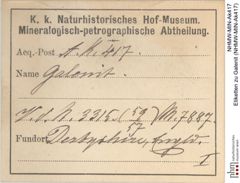 K. k. Naturhistorisches Hof-Museum.
Mineralogisch-petrographische Abtheilung.
Acq.-Post A. M. 417
Name Galenit.
M. 7887.
Fundort Derbyshire, Engld.
I
NHMW-MIN-Ak417
Etiketten zu Galenit (NHMW-MIN-Ak417)
nhm